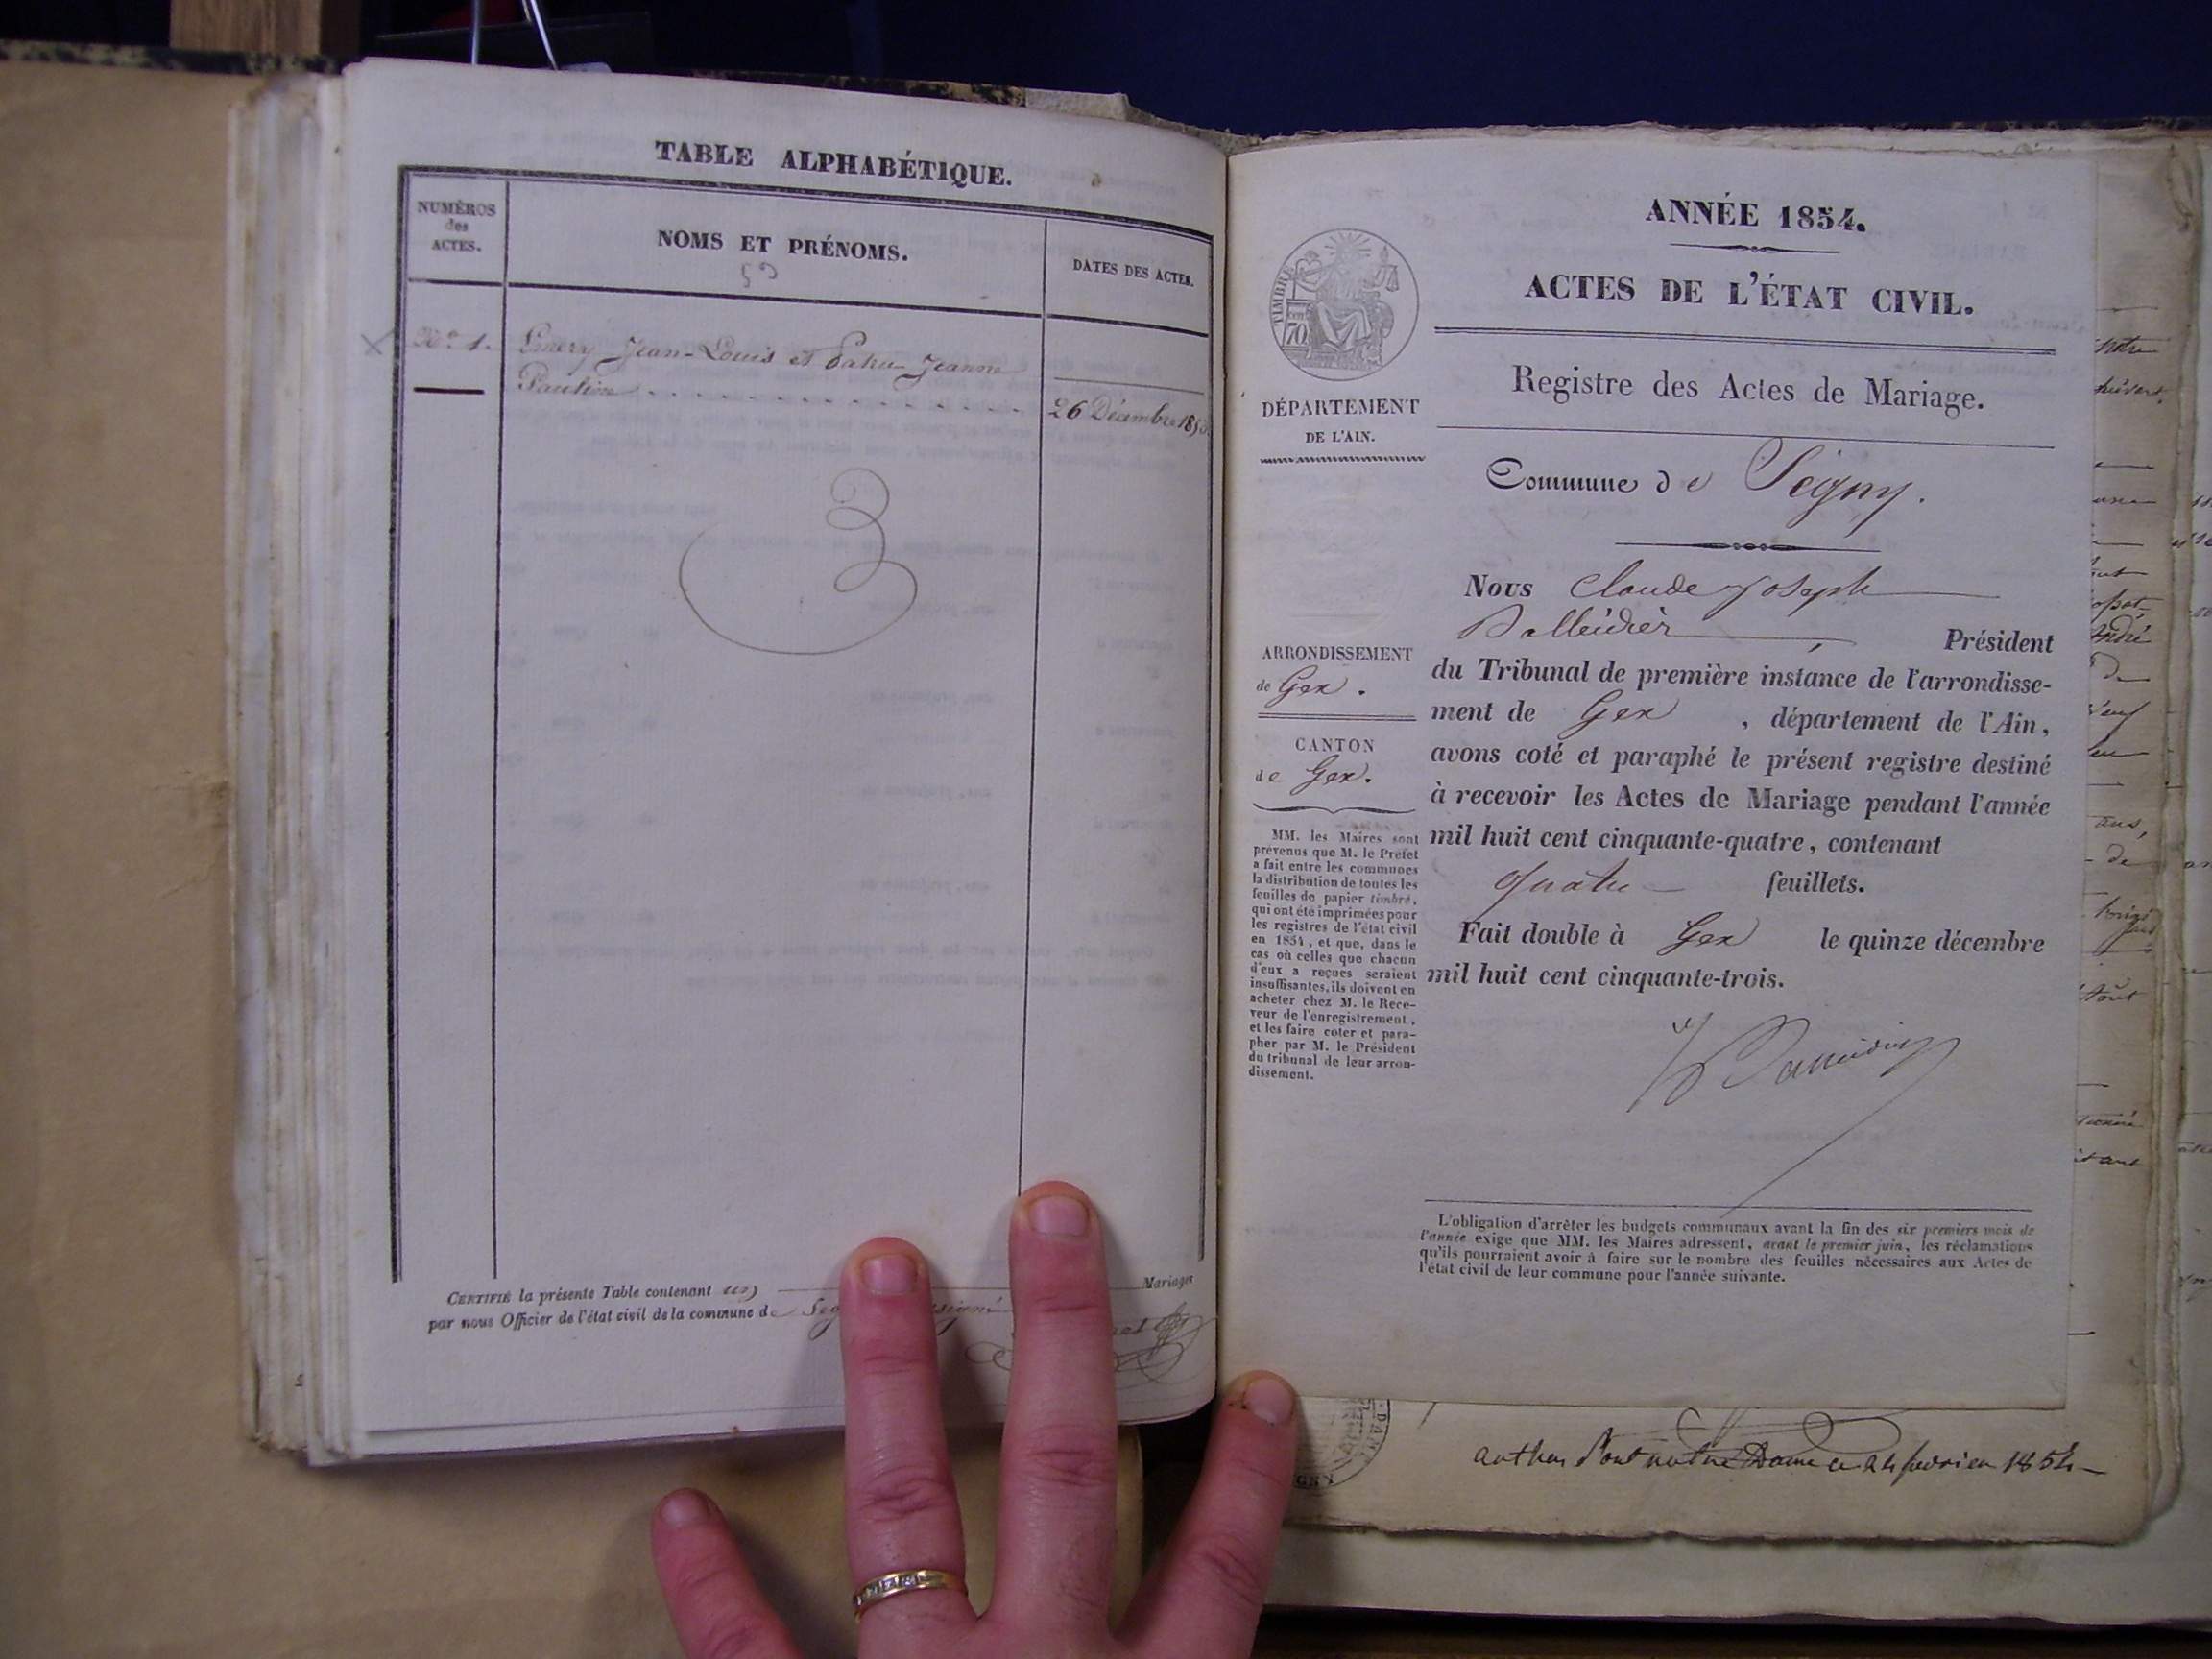 TABLE ALPHABÉTIQUE.
NUMÉROS
des
ACTES.
NOMS ET PRÉNOMS.
DATES DES ACTES.
N.° 1. Emery Jean-Louis et Jeanne
Pauline
26 Décembre 185
CERTIFIÉ la présente Table contenant un Mariages
par nous Officier de l'état civil de la commune de
ANNÉE 1854.
ACTES DE L'ÉTAT CIVIL.
Registre des Actes de Mariage.
TIMBRE
70
DÉPARTEMENT
DE L'AIN.
Commune de Ségny.
Nous Claude Joseph
Président
du Tribunal de première instance de l'arrondisse-
ment de Gex, département de l'Ain,
avons coté et paraphé le présent registre destiné
à recevoir les Actes de Mariage pendant l'année
mil huit cent cinquante-quatre, contenant
quatre feuillets.
Fait double à Gex le quinze décembre
mil huit cent cinquante-trois.
ARRONDISSEMENT
de Gex.
CANTON
de Gex.
MM. les Maires sont
prévenus que M. le Préfet
a fait entre les communes
la distribution de toutes les
feuilles de papier timbré,
qui ont été imprimées pour
les registres de l'état civil
en 1854, et que, dans le
cas où celles que chacun
d'eux a reçues seraient
insuffisantes, ils doivent en
acheter chez M. le Rece-
veur de l'enregistrement,
et les faire coter et para-
pher par M. le Président
du tribunal de leur arron-
dissement.
L'obligation d'arrêter les budgets communaux avant la fin des six premiers mois de
l'année exige que MM. les Maires adressent, avant le premier juin, les réclamations
qu'ils pourraient avoir à faire sur le nombre des feuilles nécessaires aux Actes de
l'état civil de leur commune pour l'année suivante.
1854